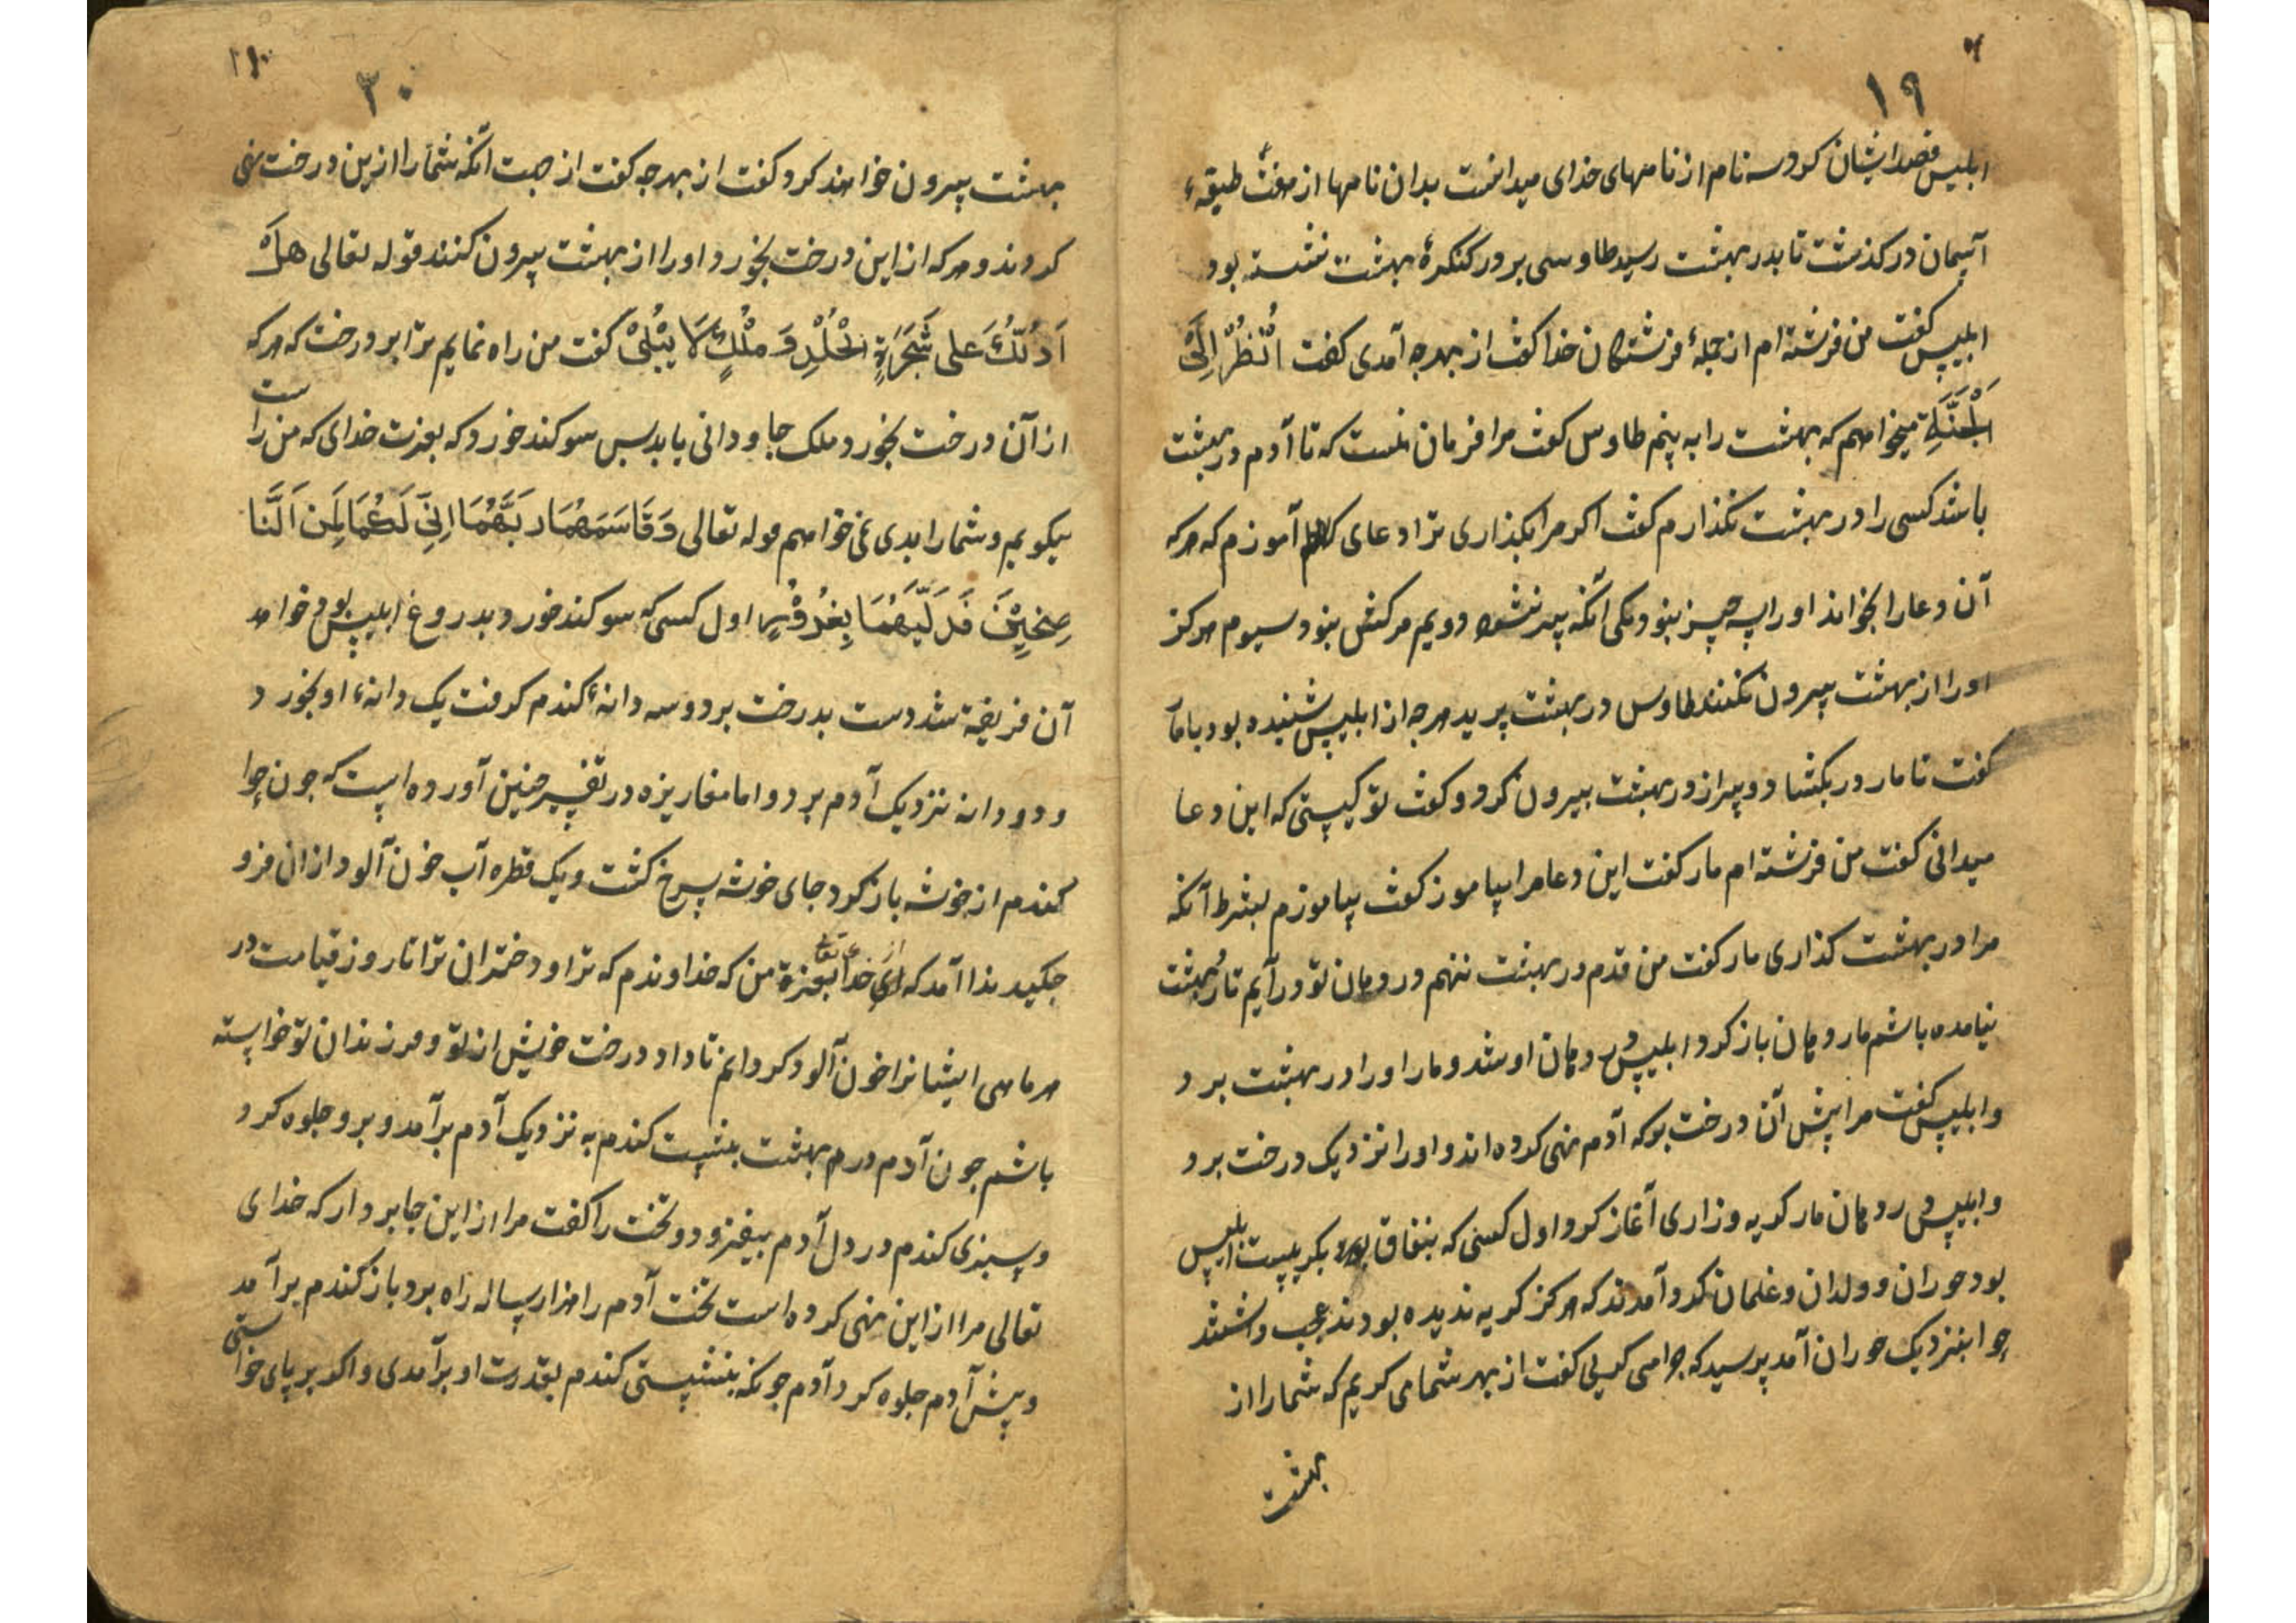 ۱۹
ابلیس قصد ایشان کرد و سه نام از نامهای خدای میدانست بدان نامها از هفت طبقهٔ
آسمان در گذشت تا بدر بهشت رسید طاوسی برور کنکرهٔ بهشت نشسته بود
ابلیس گفت من فرشته ام از جملهٔ فرشتکان خدا گفت از بهر چه آمدی گفت اُنْظُرْ اِلَی
الْجَنَّةِ میخواهم که بهشت را به بینم طاوس گفت مرا فرمان نیست که تا آدم در بهشت
باشد کسی را در بهشت بگذارم گفت اگر مرا بگذاری ترا دعای آموزم که هر که
آن دعا را بخواند او را سه چیز بنود یکی آنکه پیر نشود دویم مرکش بنود سیوم هرکز
او را از بهشت بیرون نکنند طاوس در بهشت پرید هر چه از ابلیس شنیده بود با مار
گفت تا مار در بکشاد و سر از در بهشت بیرون کرد و گفت تو کیستی که این دعا
میدانی گفت من فرشته ام مار گفت این دعا مرا بیاموز گفت بیاموزم بشرط آنکه
مرا در بهشت گذاری مار گفت من قدم در بهشت ننهم در دهان تو در آیم تا در بهشت
نیامده باشم مار دهان باز کرد ابلیس در دهان او شد و مار او را در بهشت برد
و ابلیس گفت مرا پیش آن درخت بر که آدم نهی کرده اند و او را نزدیک درخت برد
و ابلیس در دهان مار گریه و زاری آغاز کرد اول کسی که بنفاق بگریست ابلیس
بود حوران و ولدان و غلمان گرد آمدند که هرکز گریه ندیده بودند عجب داشتند
حوا بنزدیک حوران آمد پرسید که چرا می گریی گفت از بهر شما می گریم که شما را از
بهشت
۲۰
بهشت بیرون خواهند کرد گفت از بهر چه گفت از جهت آنکه شما را ازین درخت نهی
کردند و هر که از این درخت بخورد او را از بهشت بیرون کنند قوله تعالی هَلْ
اَدُلُّکَ عَلی شَجَرَةِ الْخُلْدِ وَ مُلْکٍ لَا یَبْلیْ گفت من راه نمایم ترا بر درخت که هر که
از آن درخت بخورد ملک جاودانی یابد پس سوکند خورد که بعزت خدای که من راست
میکویم و شما را بدی نمی خواهم قوله تعالی وَ قَاسَمَهُمَا رَبَّهُمَا اِنِّی لَکُمَا لَمِنَ النَّا
صِحِیْنَ فَدَلَّیهُمَا بِغُرُوْرٍ اول کسی که سوکند خورد بدروغ ابلیس بود حوا بد
آن فریفته شد دست بدرخت برد و سه دانهٔ کندم گرفت یک دانهٔ او بخورد
و دو دانه نزدیک آدم برد و اما در تفسیر چنین آورده است که چون حوا
کندم از خوشه باز کرد جای خوشه سرخ گشت و یک قطره آب خون آلود از ان فرو
چکید ندا آمد که ای حوا بعزة من که خداوندم که ترا و دختران ترا تا روز قیامت در
هر ماهی ایشانرا خون آلود کردانم تا داد درخت خویش از تو و فرزندان تو خواسته
باشم چون آدم در بهشت بنشست کندم به نزدیک آدم برآمد و برو جلوه کرد
و سبزی کندم در دل آدم بیفزود و تخت را گفت مرا از این جا بردار که خدای
تعالی مرا از این نهی کرده است تخت آدم را هزار ساله راه برد باز کندم برآمد
و پیش آدم جلوه کرد آدم چونکه بنشستی کندم بقدرت او برآمدی و اگر بر پای خواستی